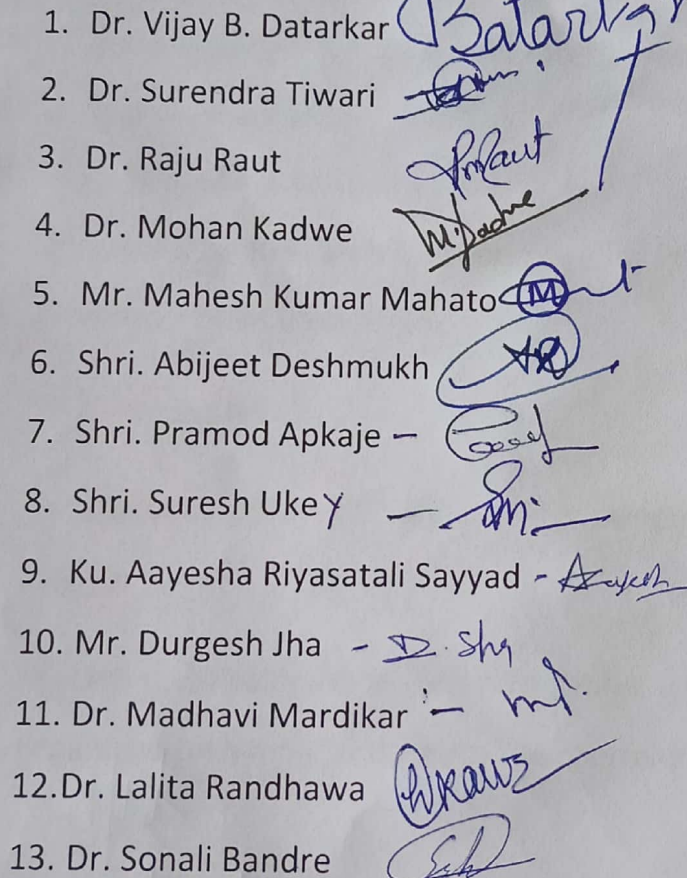 1. Dr. Vijay B. Datarkar Datarkar
2. Dr. Surendra Tiwari
3. Dr. Raju Raut Raut
4. Dr. Mohan Kadwe
5. Mr. Mahesh Kumar Mahato
6. Shri. Abijeet Deshmukh
7. Shri. Pramod Apkaje –
8. Shri. Suresh Ukey –
9. Ku. Aayesha Riyasatali Sayyad -
10. Mr. Durgesh Jha -
11. Dr. Madhavi Mardikar –
12.Dr. Lalita Randhawa
13. Dr. Sonali Bandre